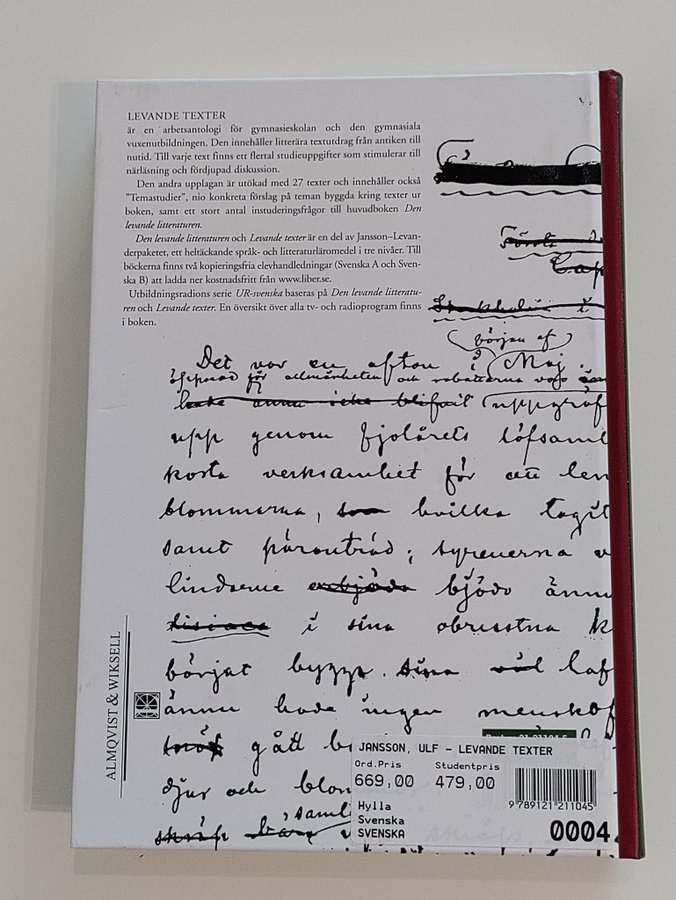 LEVANDE TEXTER
är en arbetsantologi för gymnasieskolan och den gymnasiala
vuxenutbildningen. Den innehåller litterära textutdrag från antiken till
nutid. Till varje text finns ett flertal studieuppgifter som stimulerar till
närläsning och fördjupad diskussion.
Den andra upplagan är utökad med 27 texter och innehåller också
"Temastudier", nio konkreta förslag på teman byggda kring texter ur
boken, samt ett stort antal instuderingsfrågor till huvudboken Den
levande litteraturen.
Den levande litteraturen och Levande texter är en del av Jansson–Levan-
derpaketet, ett heltäckande språk- och litteraturläromedel i tre nivåer. Till
böckerna finns två kopieringsfria elevhandledningar (Svenska A och Sven-
ska B) att ladda ner kostnadsfritt från www.liber.se.
Utbildningsradions serie UR-svenska baseras på Den levande litteratu-
ren och Levande texter. En översikt över alla tv- och radioprogram finns
i boken.
Första
Cap
Stockholm i
början af
Det var en afton i Maj.
öppnad för allmänheten och rabatterna voro
hade ännu icke blifvit uppgräf
upp genom fjolårets löfsaml
korta verksamhet för att
blommorna, som hvilka tagit
samt päronträd; syrenerna
lindarne bjödo ännu
i sina obrustna k
börjat bygga. sina
ännu hade ingen menskof
gått
djur och blom
saml
ALMQVIST & WIKSELL
JANSSON, ULF - LEVANDE TEXTER
Ord.Pris Studentpris
669,00 479,00
Hylla
Svenska
SVENSKA
9 789121 211045
0004